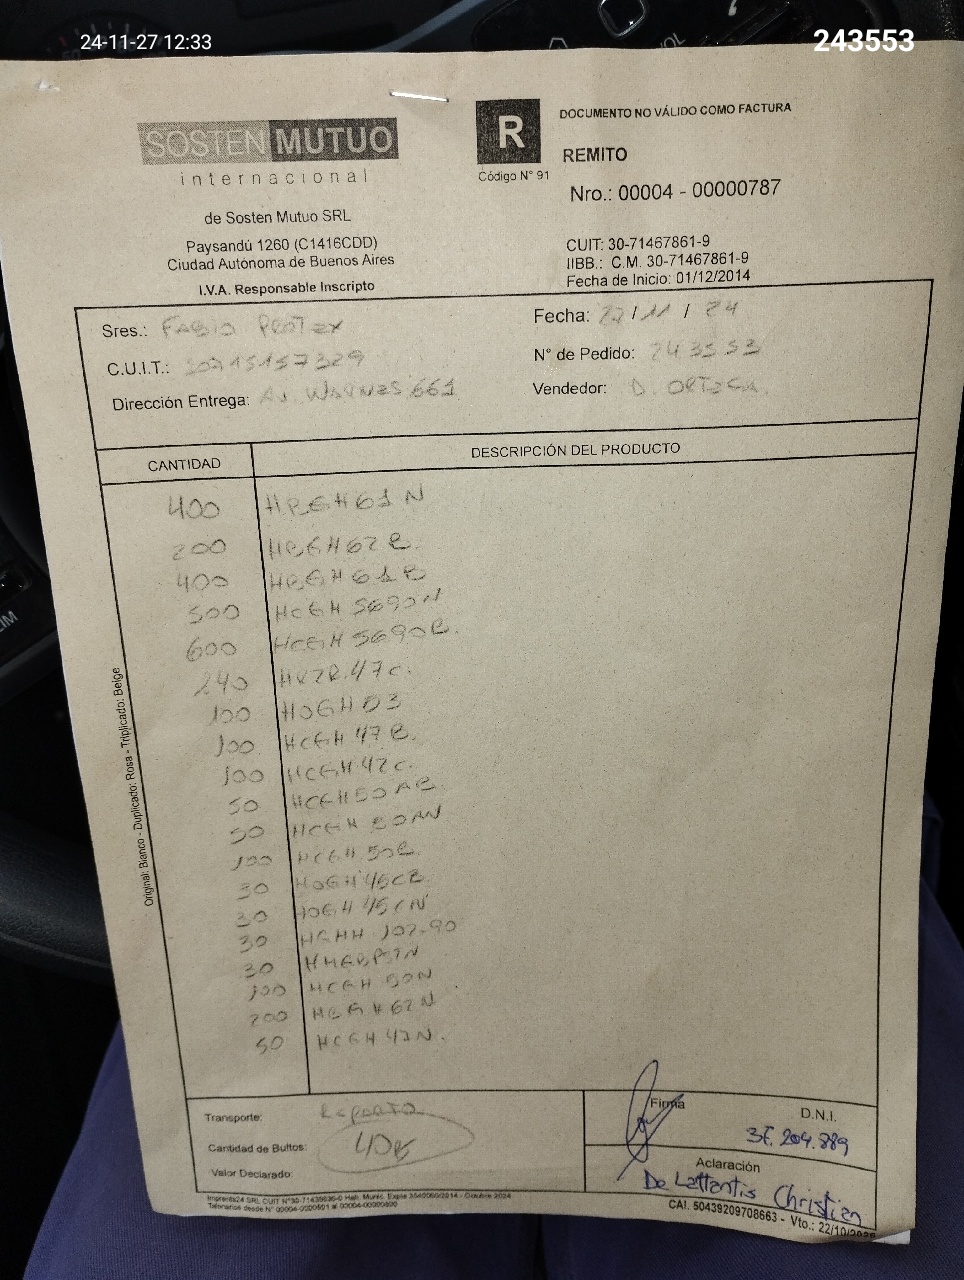 24-11-27 12:33
243553
SOSTEN MUTUO
internacional
de Sosten Mutuo SRL
Paysandú 1260 (C1416CDD)
Ciudad Autónoma de Buenos Aires
I.V.A. Responsable Inscripto
R
Código N° 91
DOCUMENTO NO VÁLIDO COMO FACTURA
REMITO
Nro.: 00004 - 00000787
CUIT: 30-71467861-9
IIBB.: C.M. 30-71467861-9
Fecha de Inicio: 01/12/2014
Sres.: FABIO PROTEX
C.U.I.T.: 30715157329
Dirección Entrega: AV. WARNES 661
Fecha: 27/11 / 24
N° de Pedido: 243553
Vendedor: D. ORTEGA.
CANTIDAD DESCRIPCIÓN DEL PRODUCTO
400 HBGH61N
200 HBGH62B.
400 HBGH61B
500 HCGH5690N
600 HCGH5690B.
240
100 HOGH03
100 HCGH47B.
100 HCGH42C.
50 HCGH50AB
50 HCGH50AN
100 HCGH50B
30 HOGH45CB
30 HOGH45CN
30 HGHH 102-90
30
100 HCGH 50N
200 HBGH62N
50 HCGH 42N.
Original: Blanco - Duplicado: Rosa - Triplicado: Beige
Transporte:
Cantidad de Bultos: 40
Valor Declarado:
Firma
D.N.I.
37.204.889
Aclaración
De Lattantis Christian
Imprenta24 SRL CUIT
Talonarios desde N° 00004-00000501 al
CAI. 50439209708663 - Vto.: 22/10/2025